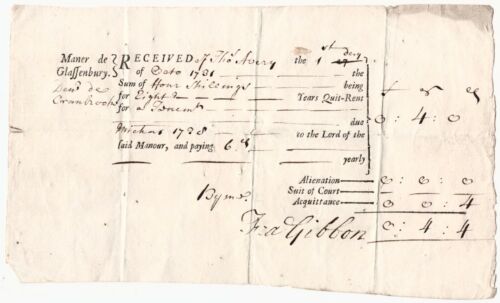 Maner de
Glassenbury.
Denn de
Cranbrook
RECEIVED of Tho: Avery the 1st day
of Octo 1731 the
Sum of Four Shillings being
for Eight Years Quit-Rent
for a Tenemt due
Michas 1728 to the Lord of the
said Manour, and paying 6d yearly
£ s d
0 : 4 : 0
Alienation 0 : 0 : 0
Suit of Court
Acquittance 0 : 0 : 4
By me.
Fra Gibbon 0 : 4 : 4